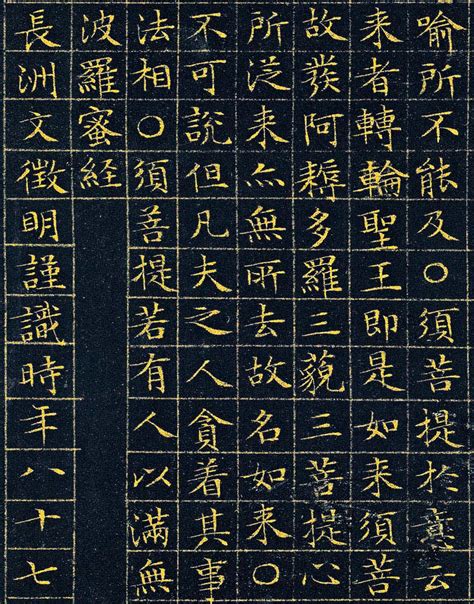 喻所不能及〇須菩提扵意云
来者轉輪聖王即是如来須菩
故發阿耨多羅三藐三菩提心
所從来亦無所去故名如来〇
不可說但凡夫之人貪着其事
法相〇須菩提若有人以滿無
波羅蜜経
長洲文徵明謹識時年八十七